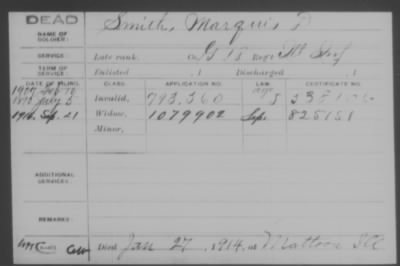 DEAD
NAME OF SOLDIER: Smith, Marquis D
SERVICE: Late rank, Co. Regt. Ill Inf
TERM OF SERVICE: Enlisted , 1 Discharged , 1
DATE OF FILING. CLASS. APPLICATION NO. LAW. CERTIFICATE NO.
July 5 Invalid, 793,360
1916. Sep. 21 Widow, 1079902 Sep. 825151
Minor,
ADDITIONAL SERVICES:
REMARKS:
Died Jan 27, 1914, at Mattoon Ill